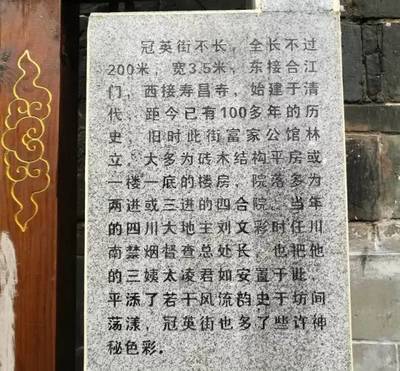 冠英街不长，全长不过
200米，宽3.5米，东接合江
门，西接寿昌寺，始建于清
代，距今已有100多年的历
史，旧时此街富家公馆林
立，大多为砖木结构平房或
一楼一底的楼房，院落多为
两进或三进的四合院。当年
的四川大地主刘文彩时任川
南禁烟督查总处长，也把他
的三姨太凌君如安置于此，
平添了若干风流韵史于坊间
荡漾，冠英街也多了些许神
秘色彩．